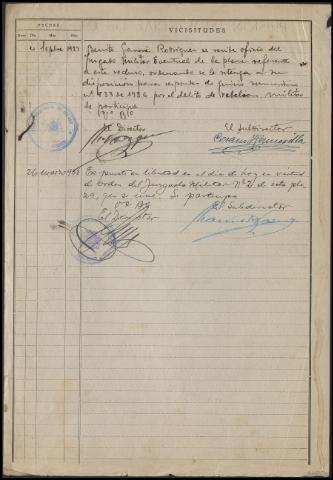 FECHAS
VICISITUDES
Día Mes Año
Septbre 1937 Benito Rodríguez se recibe oficio del
Juzgado Militar Eventual de la plaza referente
a este recluso, ordenando se le retenga a su
disposición para responder de juicio sumarísimo
nº 433 de 1936 por el delito de rebelión militar
se participa
Vº Bº
El Director
El Subdirector
26 enero 1938 Es puesto en libertad en el día de hoy en virtud
de orden del Juzgado Militar Nº 2 de esta pla
za, que se une. Se participa
Vº Bº
El Director
El Subdirector